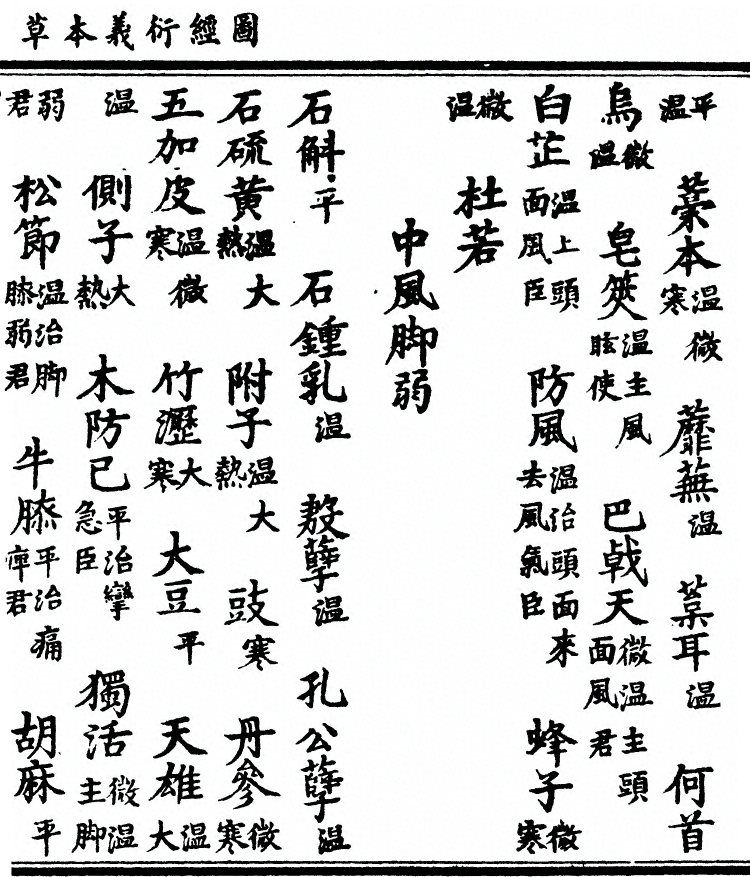 圖經衍義本草
平温 藁本温微寒 蘼蕪温 葈耳温 何首
烏微温 皂筴温主風眩使 巴戟天微温主頭面風君
白芷温上頭面風臣 防風温治頭面來去風氣臣 蜂子微寒
微温 杜若
中風脚弱
石斛平 石鍾乳温 殷孽温 孔公孽温
石硫黄温大熱 附子温大熱 豉寒 丹參微寒
五加皮温微寒 竹瀝大寒 大豆平 天雄温大
温 側子大熱 木防己平治攣急臣 獨活微温主脚
弱君 松節温治脚膝弱君 牛膝平治痛痺君 胡麻平